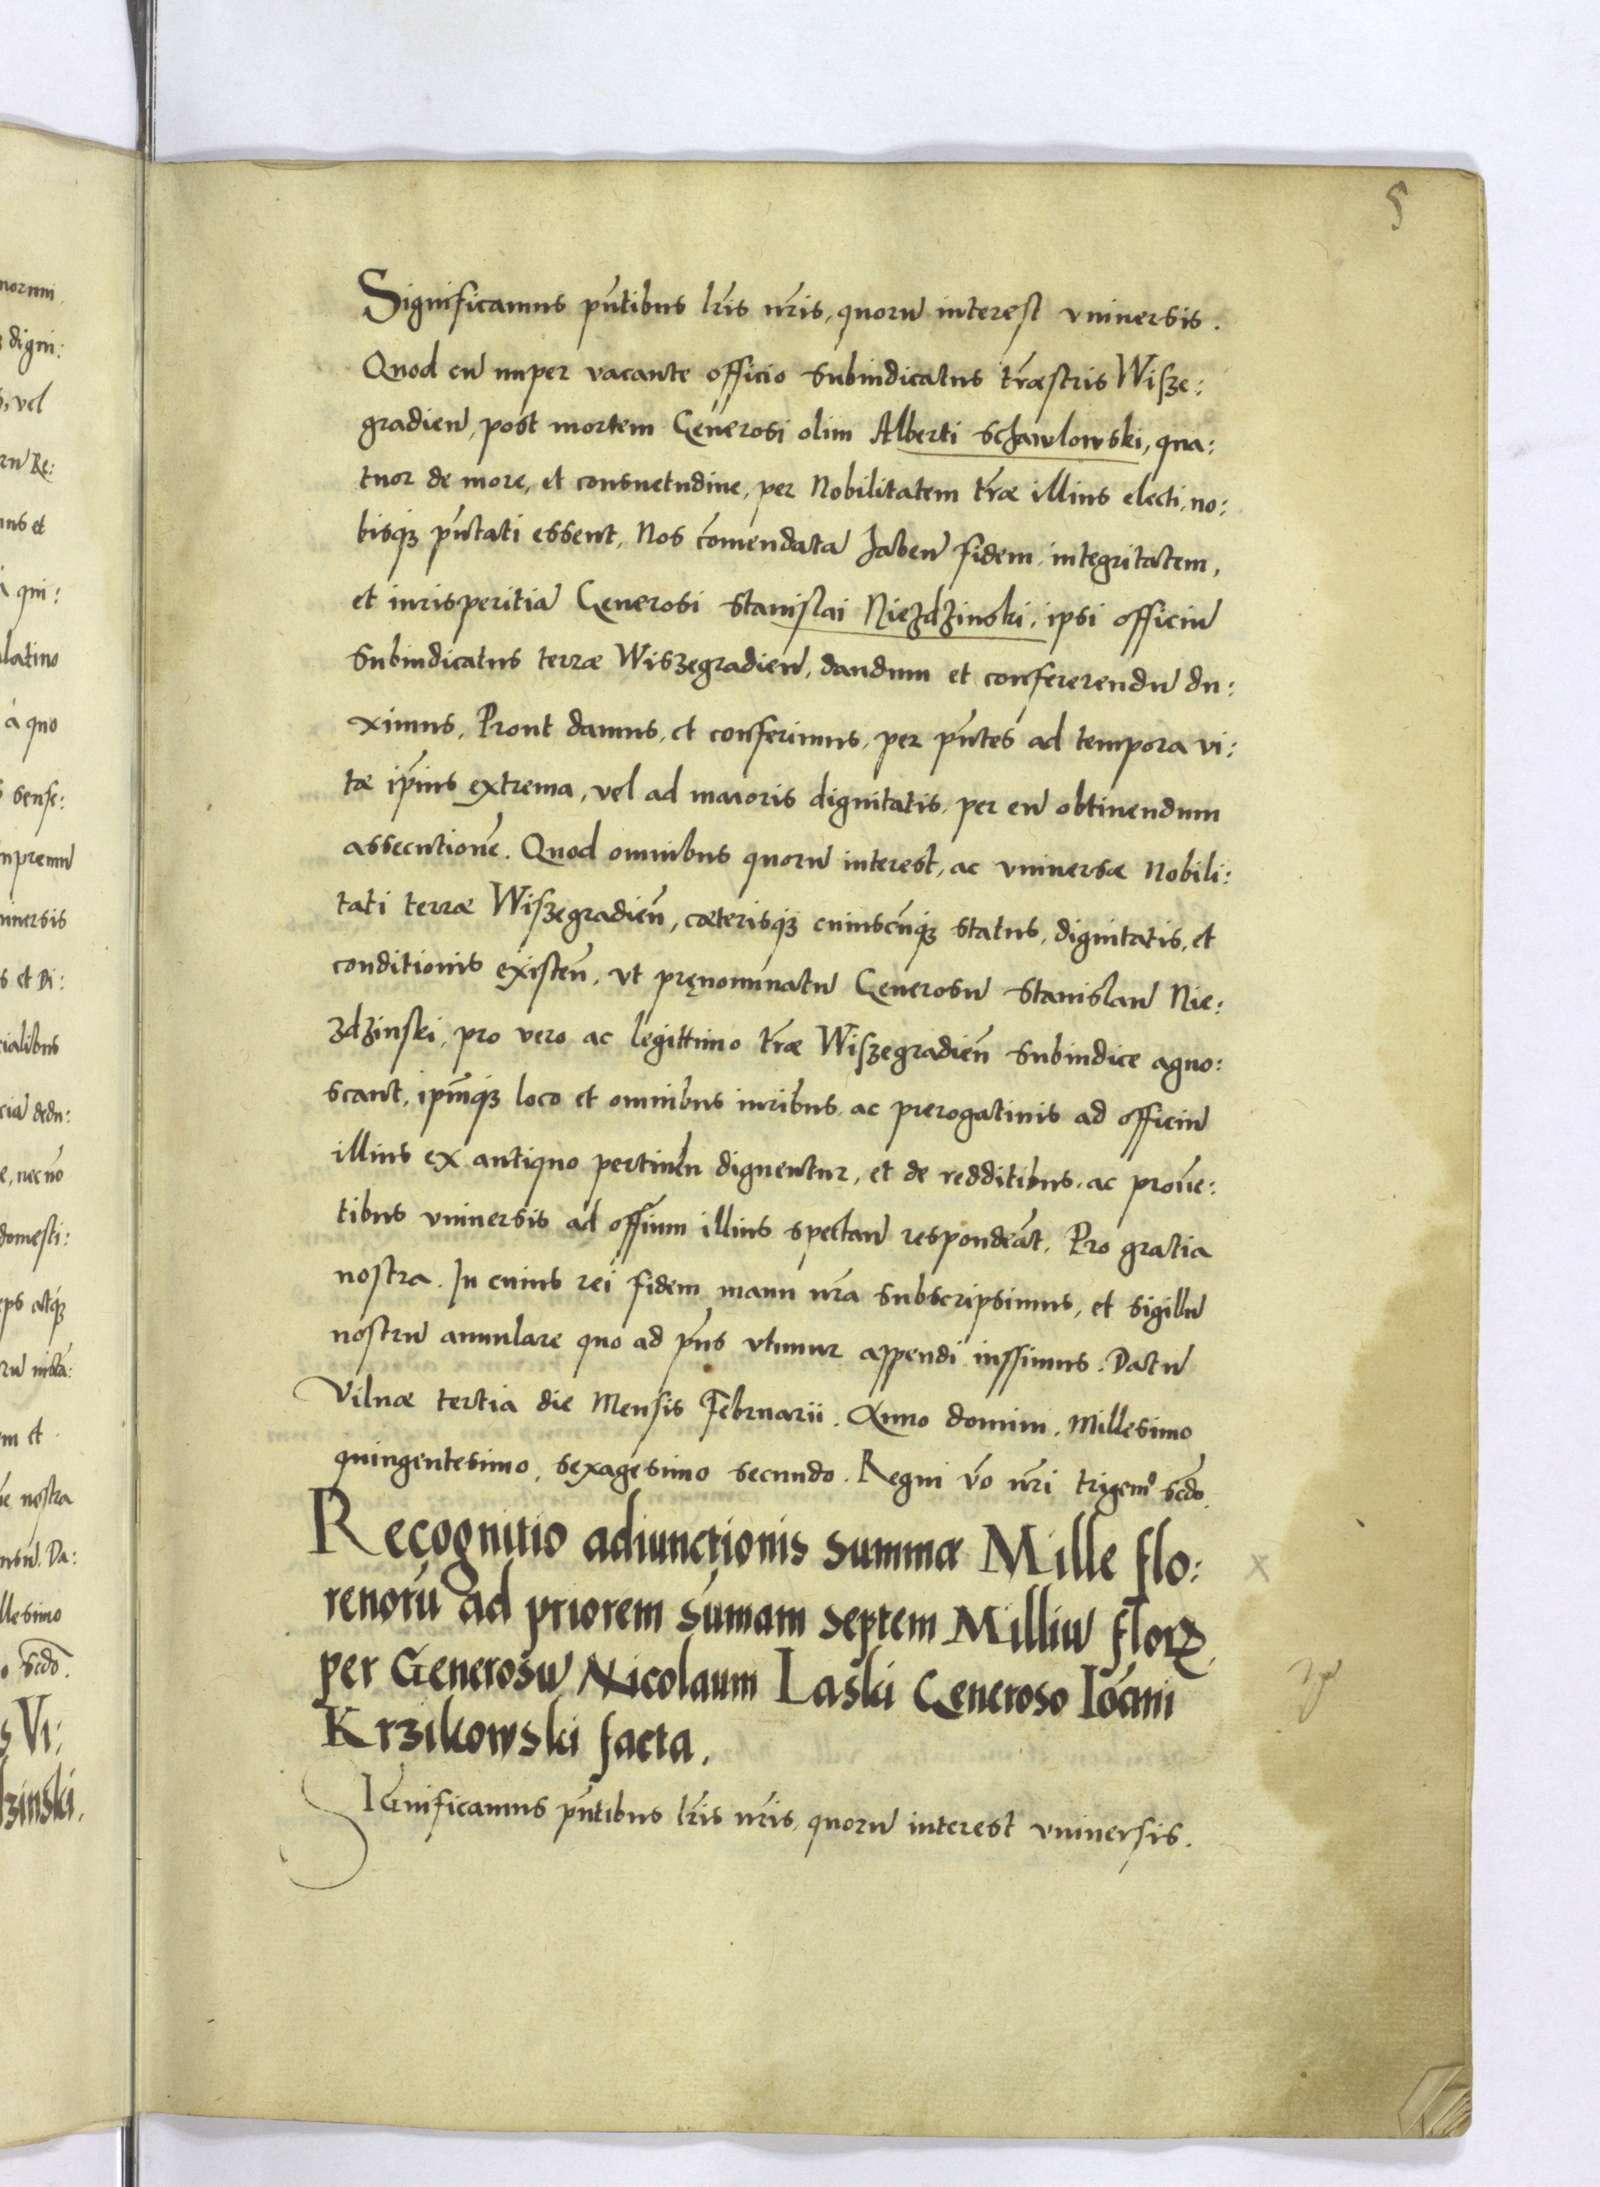 5
Significamus pñtibus lr̃is nr̃is, quorũ interest vniuersis.
Quod cũ nuper vacante officio subiudicatus tr̃æstris Wisze:
gradieñ, post mortem Generosi olim Alberti Schawlowski, qua:
tuor de more, et consuetudine, per Nobilitatem tr̃æ illius electi, no:
bisq; pñtati essent, Nos cõmendatã habeñ fidem, integritatem,
et iurisperitiã Generosi Stanislai Niezdzinski, ipsi officiũ
Subiudicatus terræ Wiszegradieñ, dandum et confererendũ du:
ximus, Prout damus, et conferimus, per pñtes ad tempora vi:
tæ ip̃ius extrema, vel ad maioris dignitatis, per eũ obtinendum
assecutionẽ. Quod omnibus quorũ interest, ac vniuersæ Nobili:
tati terræ Wiszegradieñ, cæterisq; cuiuscũq; status, dignitatis, et
conditionis existeñ, vt pręnominatũ Generosũ Stanislaũ Nie:
zdzinski, pro vero ac legittimo tr̃æ Wiszegradieñ Subiudice agno:
scant, ip̃mq; loco et omnibus iuribus, ac prerogatiuis ad officiũ
illius ex antiquo pertineñ dignentur, et de redditibus, ac prouẽ:
tibus vniuersis ad offium illius spectañ respondeãt, Pro gratia
nostra. In cuius rei fidem manu nr̃a subscripsimus, et sigillũ
nostrũ annulare quo ad p̃ns vtimur appendi iussimus. Datũ
Vilnæ tertia die Mensis Februarii. Anno domini. Millesimo
quingentesimo, sexagesimo secundo. Regni v̄o nr̃i trigemo scd̃o.
Recognitio adiunctionis summæ Mille flo:
renorũ ad priorem sũmam septem Milliũ florꝝ,
per Generosũ Nicolaum Laski Generoso Ioãni
Krzikowski facta.
SIGnificamus pñtibus lr̃is nr̃is, quorũ interest vniuersis.